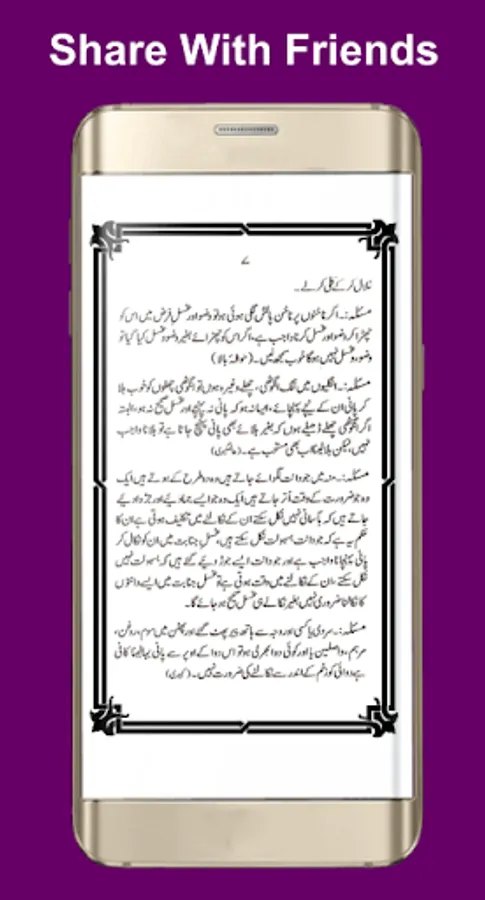 Share With Friends
۷
خلال کر کے کلی کر لے۔
مسئلہ:۔ اگر ناخنوں پر ناخن پالش لگی ہوئی ہو تو وضو اور غسل فرض میں اس کو
چھڑا کر وضو اور غسل کرنا واجب ہے، اگر اس کو چھڑائے بغیر وضو و غسل کیا گیا تو
وضو و غسل نہیں ہوگا خوب سمجھ لیں۔ (حوالہ بالا)
مسئلہ:۔ انگلیوں میں تنگ انگوٹھی، چھلے وغیرہ ہوں تو انگوٹھی چھلوں کو خوب ہلا
کر پانی ان کے نیچے پہنچائے، ایسا نہ ہو کہ پانی نہ پہنچے اور غسل صحیح نہ ہو، البتہ
اگر انگوٹھی چھلے ڈھیلے ہوں کہ بغیر ہلائے بھی پانی پہنچ جاتا ہے تو ہلانا واجب
نہیں، لیکن ہلا لینا اب بھی مستحب ہے۔ (عالمگیری)
مسئلہ:۔ منہ میں جو دانت لگوائے جاتے ہیں وہ دو طرح کے ہوتے ہیں ایک
وہ جو ضرورت کے وقت اُتر جاتے ہیں ایک وہ جو ایسے جما دیے اور جڑ دیے
جاتے ہیں کہ بآسانی نہیں نکل سکتے ان کے نکالنے میں تکلیف ہوتی ہے ان کا
حکم یہ ہے کہ جو دانت بسہولت نکل سکتے ہیں، غسل جنابت میں ان کو نکال کر
پانی پہنچانا واجب ہے اور جو دانت ایسے جوڑ دیئے گئے ہیں کہ بسہولت نہیں
نکل سکتے، ان کے نکالنے میں دقت ہوتی ہے تو غسل جنابت میں ایسے دانتوں
کا نکالنا ضروری نہیں بغیر نکالے ہی غسل صحیح ہو جائے گا۔
مسئلہ:۔ سردی یا کسی اور وجہ سے ہاتھ پیر پھٹ گئے اور پھٹن میں موم، روغن،
مرہم، واصلین یا اور کوئی دوا بھری ہو تو اس دوا کے اوپر سے پانی بہا لینا کافی
ہے دوائی کو زخم کے اندر سے نکالنے کی ضرورت نہیں۔ (کبیری)